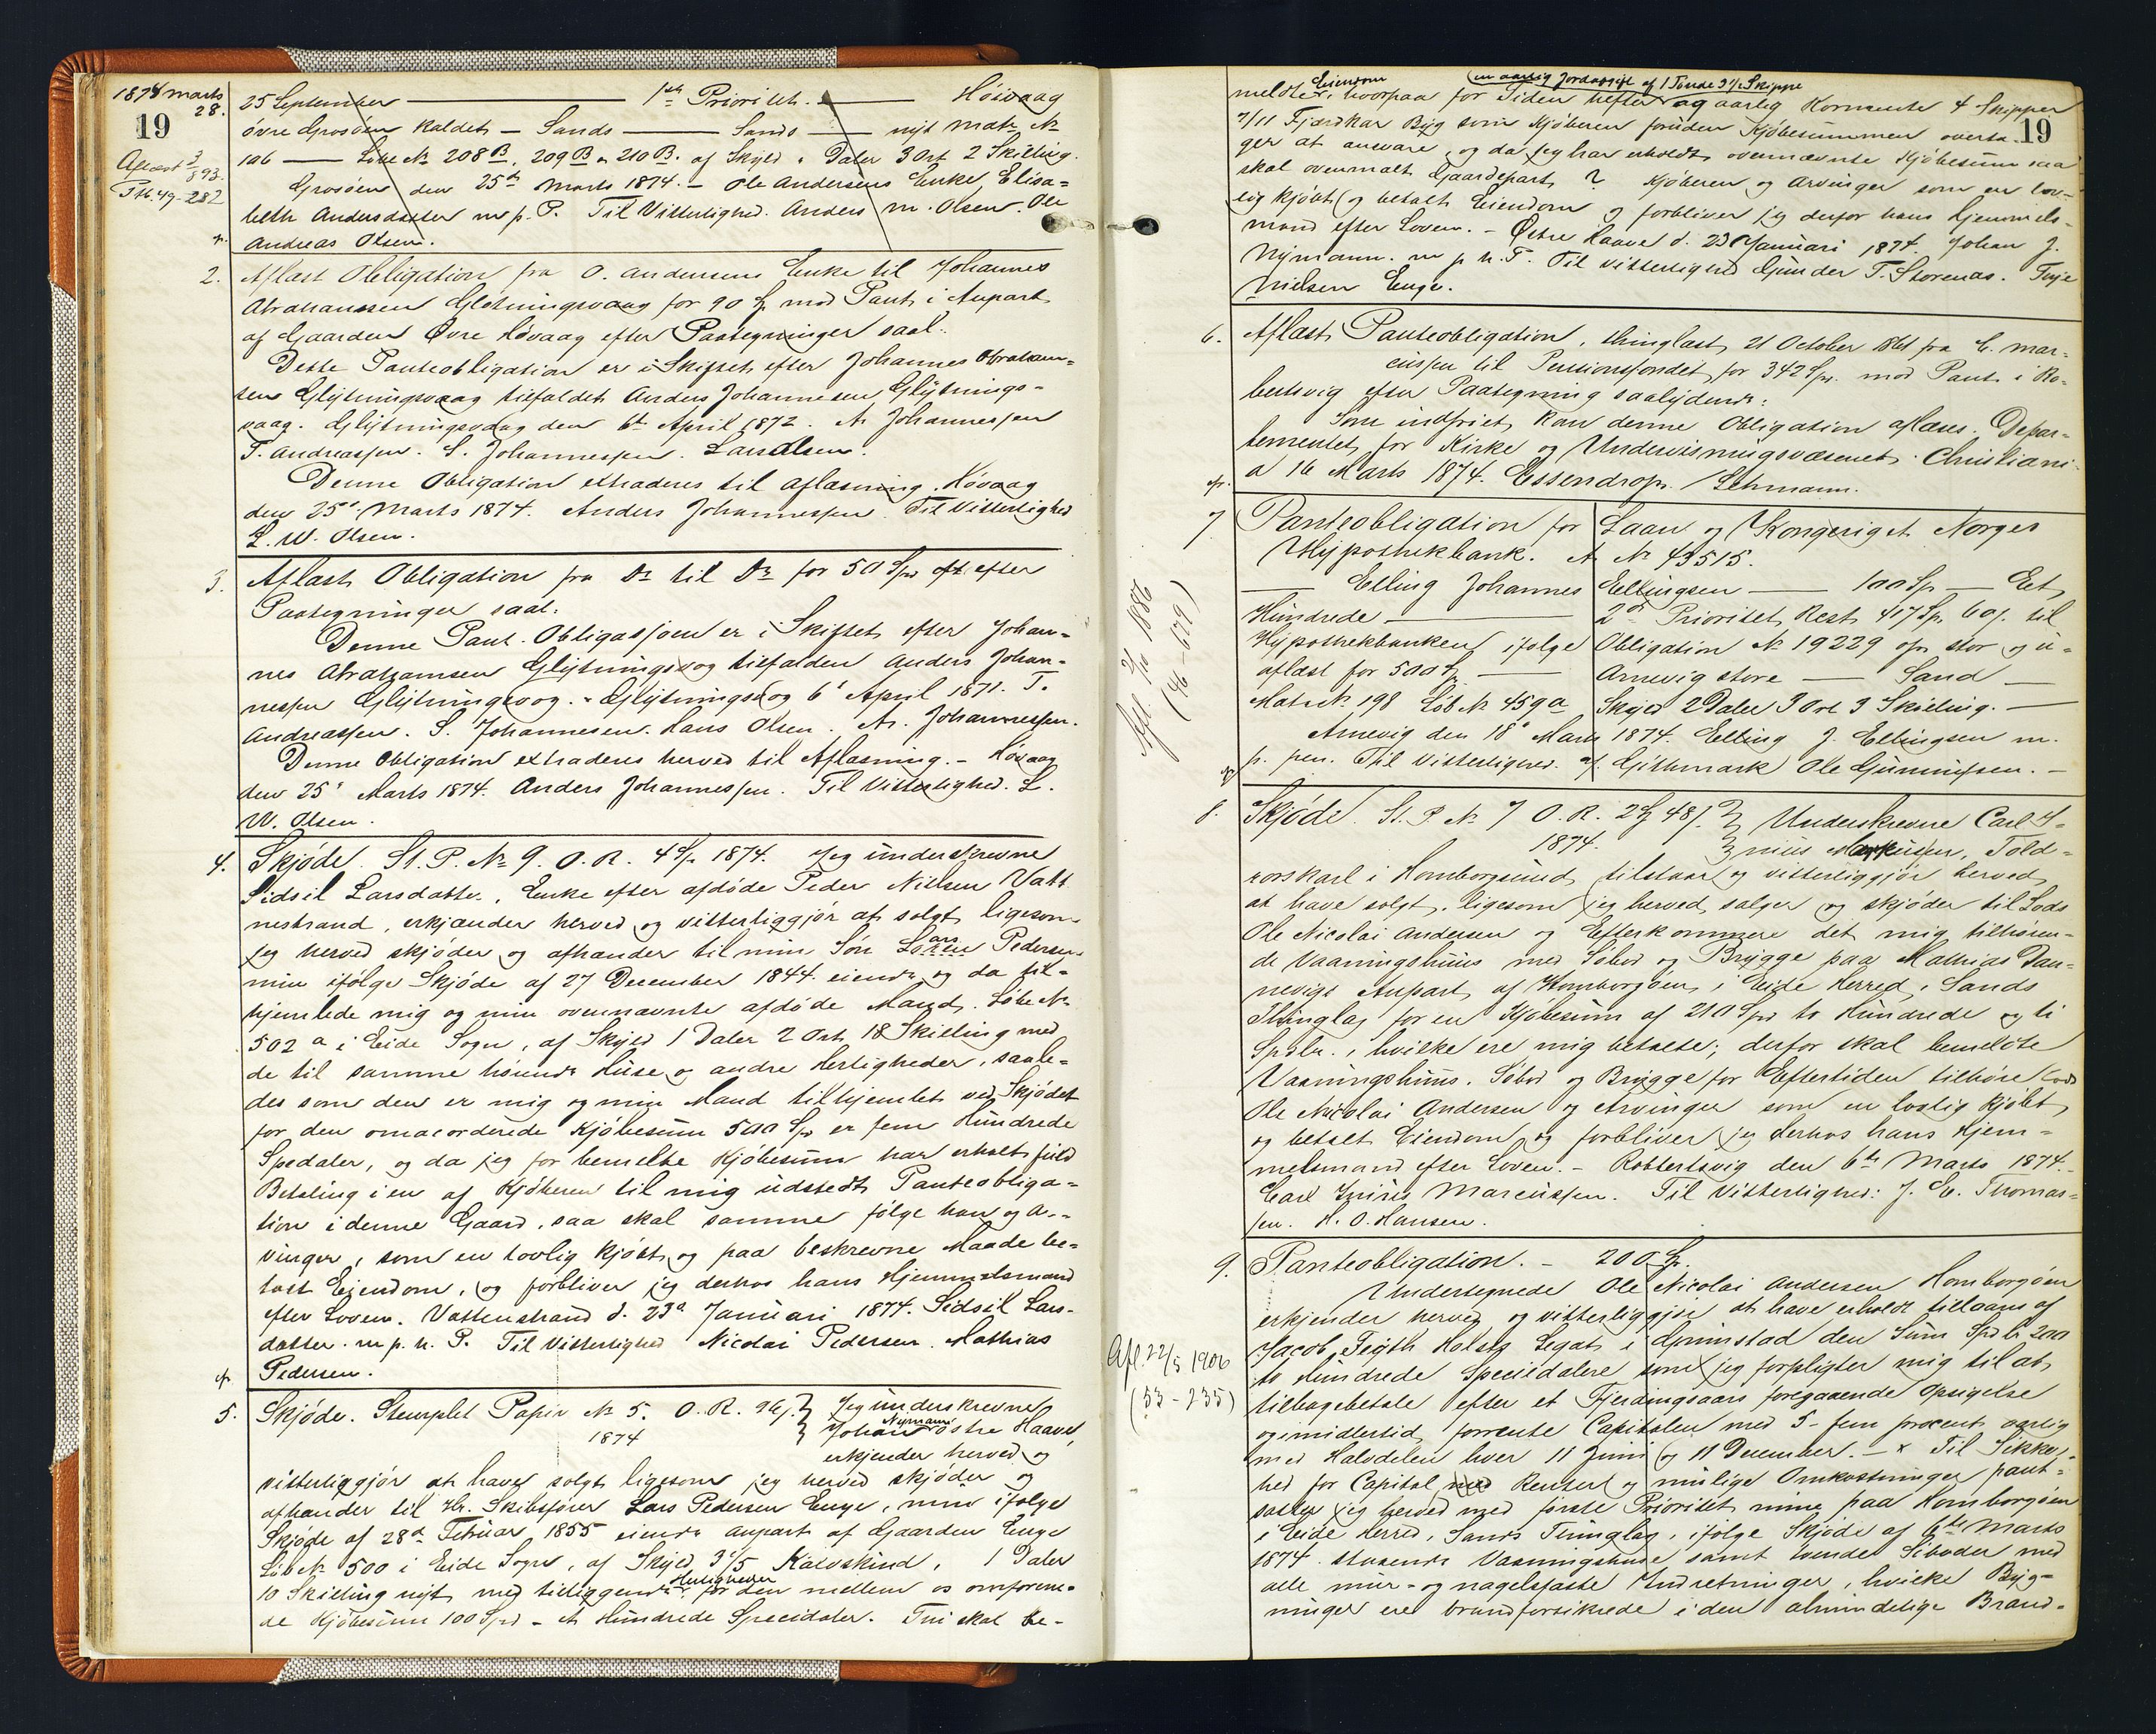 1874 marts
28.
19
Aflæst 3/8 93.
Ptb. 49-282
25 September — 1ste Prioritet. — Höivaag
övre Grosöen kaldet — Sands — Sands — nyt Matr. №
106 — Löbe № 208 B, 209 B & 210 B. af Skyld 1 Daler 3 Ort 2 Skilling.
Grosöen den 25de Marts 1874. — Ole Andersens Enke, Elisa=
beth Andersdatter m. p. P. Til Vitterlighed. Anders M. Olsen. Ole
Andreas Olsen.
2. Aflæst Obligation fra O. Andersens Enke til Johannes
Abrahamsen Glötningsvaag for 90 Sp. mod Pant i Anpart
af Gaarden Övre Hövaag efter Paategninger saal.
Dette Panteobligation er i Skiftet efter Johannes Abraham=
sen Glijtningsvaag tilfaldet Anders Johannesen Glijtnings-
vaag. Glijtningsvaag den 6te April 1872. A. Johannessen
T. Andreassen. S. Johannessen. Lars Olsen.
Denne Obligation extraderes til Aflæsning. Hövaag
den 25de Marts 1874. Anders Johannessen. Til Vitterlighed
L. W. Olsen.
3. Aflæst Obligation fra Do til Do for 50 Spd oft. efter
Paategninger saal.
Denne Pant-Obligasjoen er i Skiftet efter Johan=
nes Abrahamsen Glijtningsvog tilfalden Anders Johan=
nessen Glijtningsvog. - Glijtningsvog 6te April 1871. T.
Andreassen. S. Johannesen. Hans Olsen. A. Johannessen.
Denne Obligation extraderes herved til Aflæsning. — Hövaag
den 25de Marts 1874. Anders Johannessen. Til Vitterlighed. L.
W. Olsen.
4. Skjöde. St. P. № 9. O. R. 4 Sp. 1874. Jeg underskrevne
Sidsil Larsdatter, Enke efter afdöde Peder Nielsen Vatt
nestrand, erkjænder herved og vitterliggjör at solgt, ligesom
jeg herved skjöder og afhænder til min Sön Lars Pedersen
min ifölge Skjöde af 27 December 1844 eiende og da til=
hjemlede mig og min ovennævnte afdöde Mand. Löbe №
502 a i Eide Sogn, af Skyld 1 Daler 2 Ort 18 Skilling med
de til samme hörende Huse og andre Herligheder, saale=
des som den er mig og min Mand tilhjemlet ved Skjödet
for den omacorderede Kjöbesum 500 Spd er fem Hundrede
Spedaler, og da jeg for bemelte Kjöbesum har erholt fuld
Betaling i en af Kjöberen til mig udstedt Panteobliga=
tion i denne Gaard, saa skal samme fölge han og Ar-
vinger, som en lovlig kjöbt og paa beskrevne Maade be=
talt Eiendom, og forbliver jeg derhos hans Hjemmelsmand
efter Loven. Vattenstrand d. 23de Januari 1874. Sidsil Lars-
datter. m. p. n. P. Til Vitterlighed Nicolai Pedersen. Mathias
Pedersen.
5. Skjöde. Stemplet Papir № 5. O. R. 96/. Jeg underskrevne
1874 Johan Nijmann Östre Haave,
erkjender herved og
vitterliggjör at have solgt ligesom jeg herved skjöder og
afhænder til Hr. Skibsförer Lars Pedersen Enge, min ifolge
Skjöde af 28de Februar 1855 eiende Anpart af Gaarden Enge
Löb № 500 i Eide Sogn, af Skyld 3 1/5 Kalvskind, 1 Daler
10 Skilling nyt, med tiliggende Herligheder for den mellem os omforene-
de Kjöbesum 100 Spd - et Hundrede Speciedaler. Tni skal be-
19
meldte Eiendom, hvorpaa for Tiden hefter en aarlig Jordafgift af 1 Tönde 3 1/2 Skippe og aarlig Kornrente 4 Skipper
7/11 Fjærdkar Byg som Kjöberen foruden Kjöbesummen overta-
ger at ansvare, og da jeg har erholdt ovennævnte Kjöbesum saa
skal ovenmalt Gaardepart ? Kjöberen og Arvinger som en lov-
lig kjöbt og betalt Eiendom og forbliver jeg derfor hans Hjemmels-
mand efter Loven. — Östre Haave d. 23 Januari 1874. Johan J.
Nijmann. m p n. P. Til Vitterlighed Gunder T. Storenas. Terje
Nielsen Enge.
6. Aflæst Panteobligation, thinglæst 21 October 1861 fra C. Mar=
cussen til Pensionsfondet for 342 Sp. mod Pant i Ro=
bertsvig efter Paategning saalydende:
Som indfriet kan denne Obligation aflæses. Depar-
tementet for Kirke og Undervisningsvæsenet. Christiani-
a 16 Marts 1874. Essendrop. / Lehmann.
7. Panteobligation for Laan og Kongeriget Norges
Hypothekbank. A № 43515.
— Elling Johannes Ellingsen — 100 Sp — Et
Hundrede — 2den Prioritet Rest 417 Sp. 60/. til
Hypothekbanken ifolge Obligation № 19229 opr. stor og u-
aflæst for 500 Sp — Arnevig store — Sand —
Matr № 198 Löb № 459a Skyld 2 Daler 3 Ort 3 Skilling. —
Arnevig den 18de Marts 1874. Elling J. Ellingsen m.
p. pen. Til Vitterlighed. af. Githmark Ole Gunnufsen. —
Afl. 2/10 1886
(46-679)
8. Skjöde. St. P № 7 O. R. 2 Sp 48/. Underskrevne Carl I-
1874. nius Markussen, Told=
rorskarl i Homborgsund, tilstaar og vitterliggjör herved
at have solgt, ligesom jeg herved sælger og skjöder til Lods
Ole Nicolai Andersen og Efterkommere det mig tilhören-
de Vaaningshuus med Söbod og Brygge paa Mathias Dan-
nevigs Anpart af Homborgöen i Eide Herred, Sands
Thinglag for en Kjöbesum af 210 Spd to Hundrede og ti
Spdlr., hvilke ere mig betalte; derfor skal bemeldte
Vaaningshuus, Söbod og Brygge for Eftertiden tilhöre Lods
Ole Nicolai Andersen og Arvinger som en lovlig kjöbt
og betalt Eiendom og forbliver jeg derhos hans Hjem=
melsmand efter Loven. — Robbertsvig den 6te Marts 1874. —
Carl Inius Marcussen. Til Vitterlighed: J. Ev. Thomas=
sen. H. O. Hansen.
9. Panteobligation. — 200 Sp.
Undertegnede Ole Nicolai Andersen Homborgöen
erkjender herved og vitterliggjör at have erholdt tillaans af
Jacob Fegth Holsts Legat i Grimstad den Sum Spdlr 200
to Hundrede Speciedalere som jeg forpligter mig til at
tilbagebetale efter et Fjerdingaars foregaaende Opsigelse
og imidlertid forrente Capitalen med 5 - fem procent aarlig
med Halvdelen hver 11 Juni og 11 December. — x Til Sikker-
hed for Capital Renter og mulige Omkostninger pant=
sætter jeg herved med förste Prioritet mine paa Homborgöen
i Eide Herred, Sands Tinglag, ifolge Skjöde af 6te Marts
1874 staaende Vaaningshuse samt tvende Söboder med
alle mur- og nagelfaste Indretninger, hvilke Byg-
ninger ere brandforsikrede i den almindelige Brand-
Afl. 22/5 1906
(53-235)